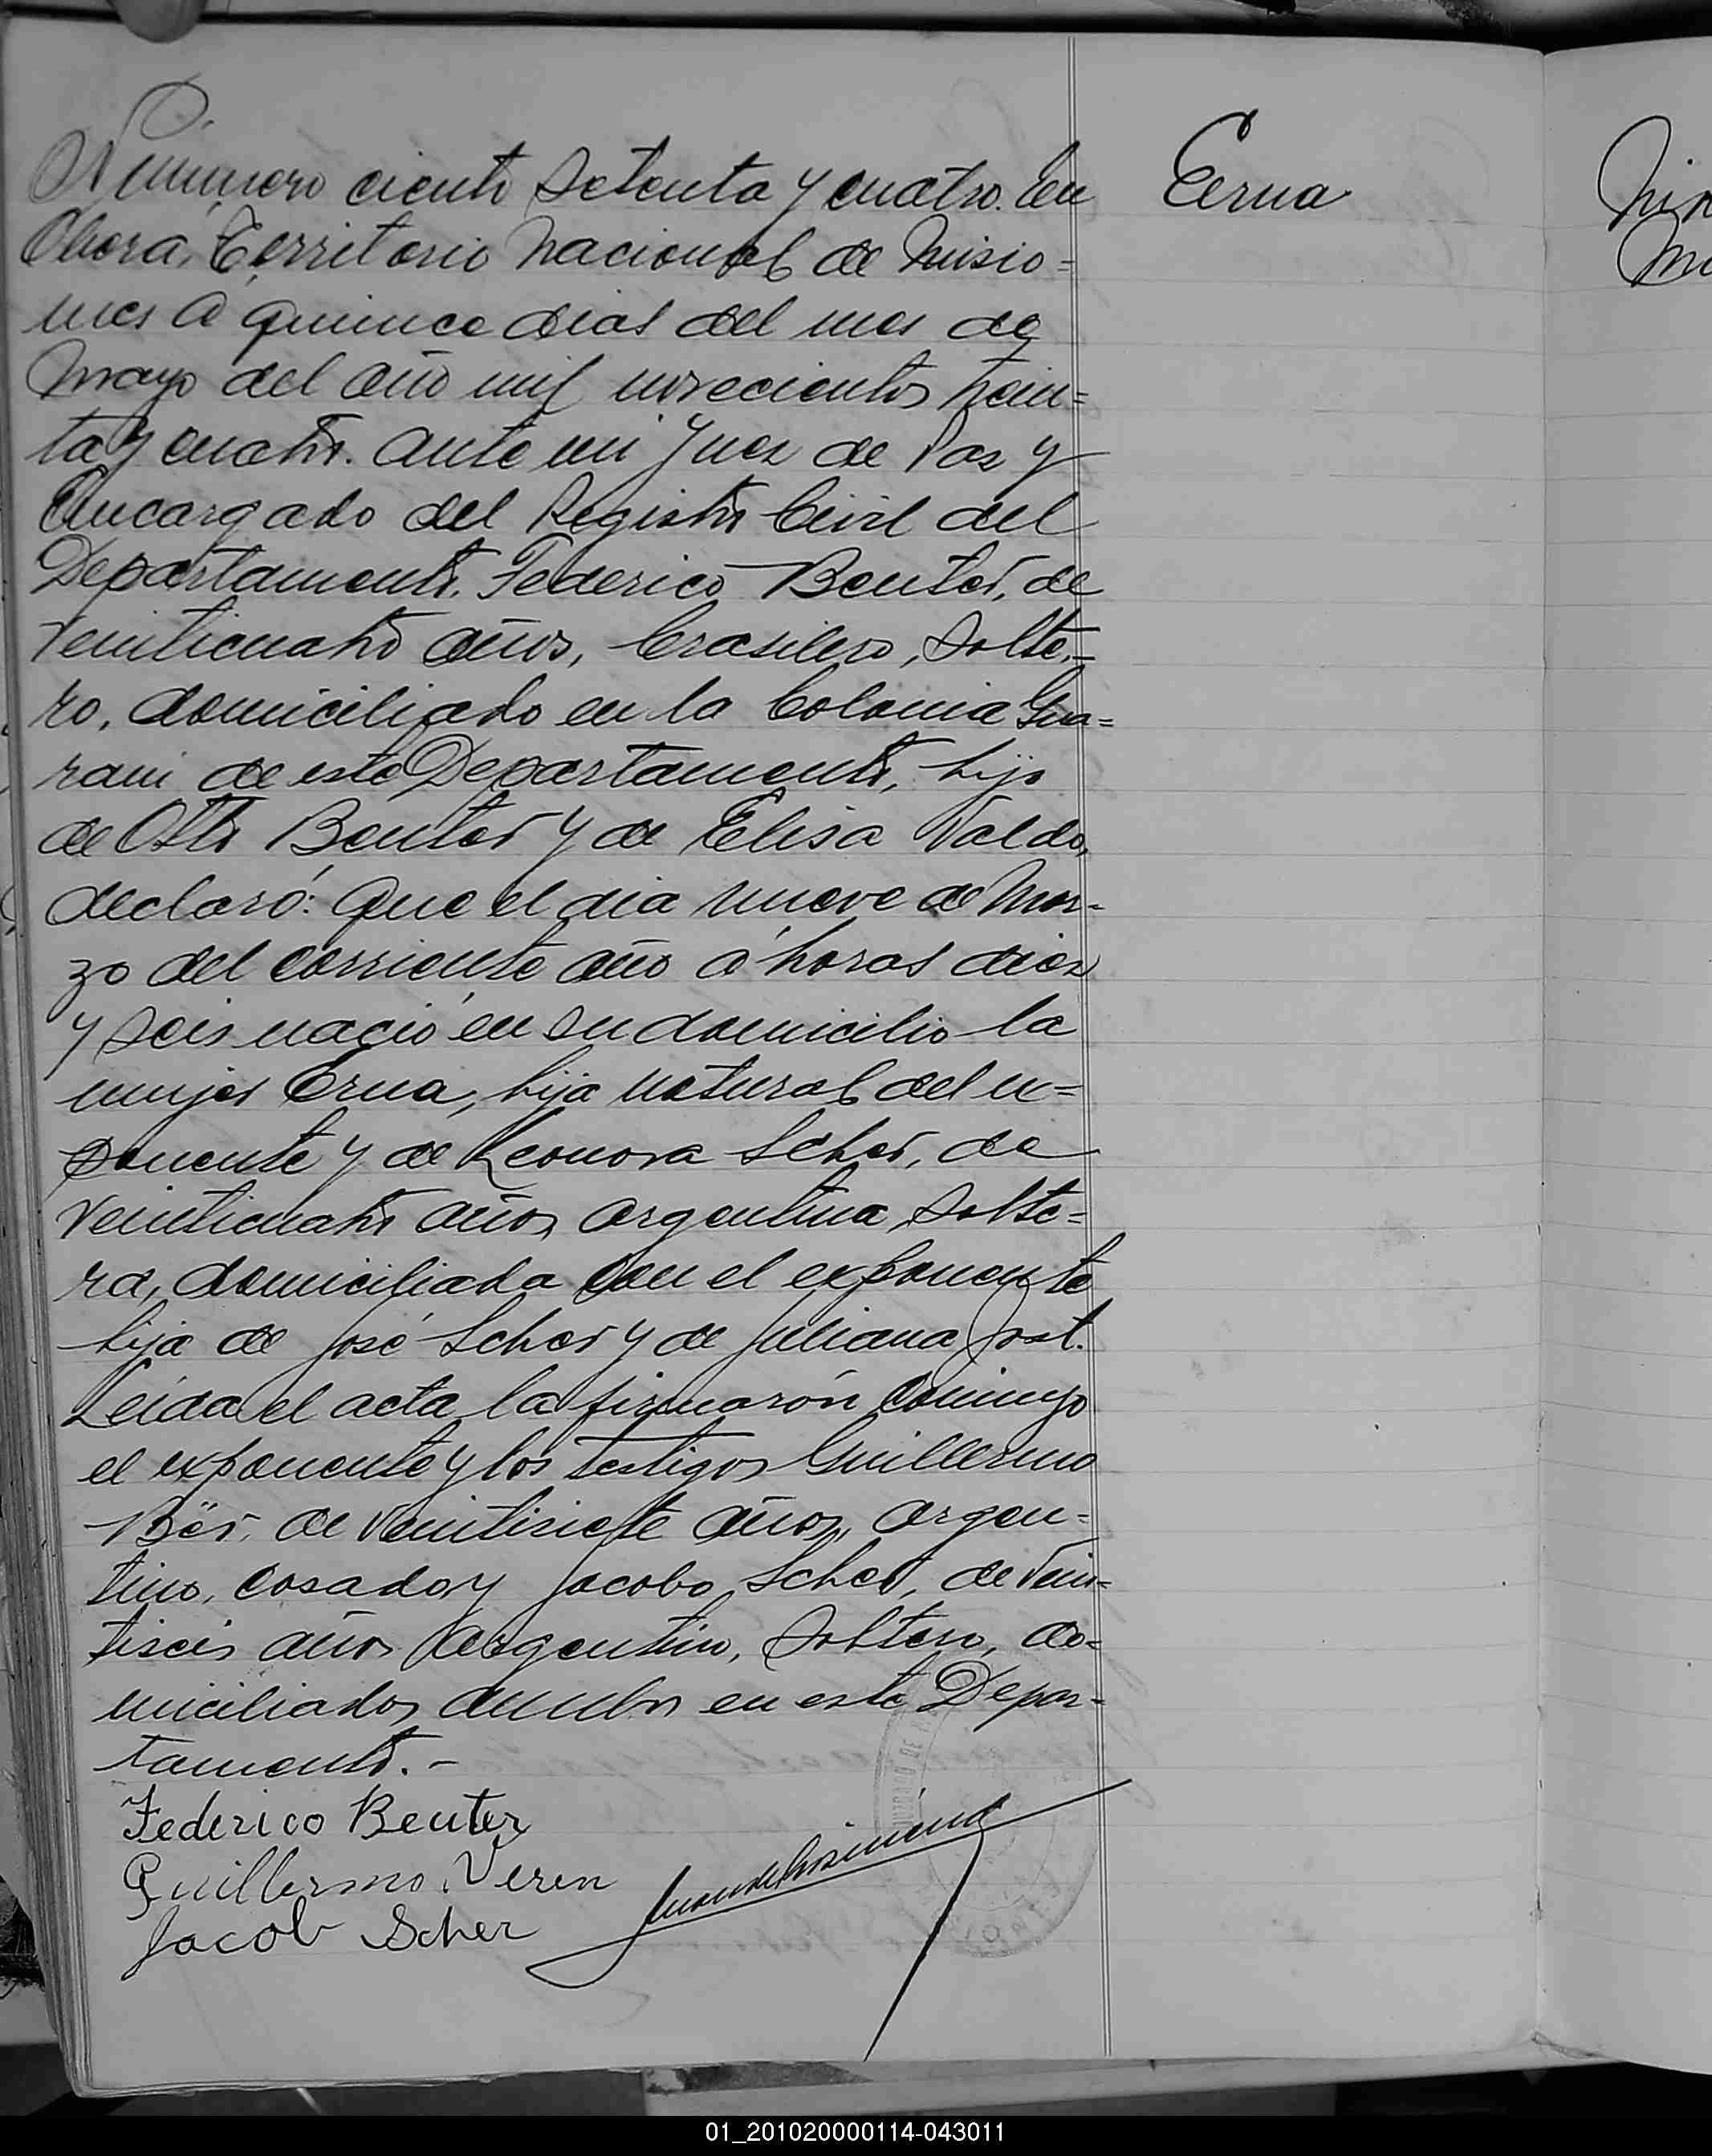 Número ciento setenta y cuatro. En
Obera, Territorio Nacional de Misio=
nes a quince dias del mes de
Mayo del año mil novecientos trein=
ta y cuatro. ante mi Juez de Paz y
Encargado del Registro Civil del
Departamento. Federico Beuter, de
veinticuatro años, brasilero, solte=
ro, domiciliado en la Colonia Gua=
rani de este Departamento, hijo
de Otto Beuter y de Elisa Valdo,
declaró: Que el dia nueve de Mar-
zo del corriente año a horas diez
y seis nació en su domicilio la
mujer Erna, hija natural del ex=
ponente y de Leonora Scher, de
veinticuatro años argentina, solte=
ra, domiciliada con el exponente
hija de José Scher y de Juliana Jost.
Leida el acta la firmarón conmigo
el exponente y los testigos Guillermo
de veintisiete años, argen=
tino, casado y Jacobo Scher, de vein=
tiseis años argentino, soltero, do=
miciliados ambos en este Depar-
tamento.-
Federico Beuter
Guillermo Veren
Jacob Scher
Erna
01_201020000114-043011